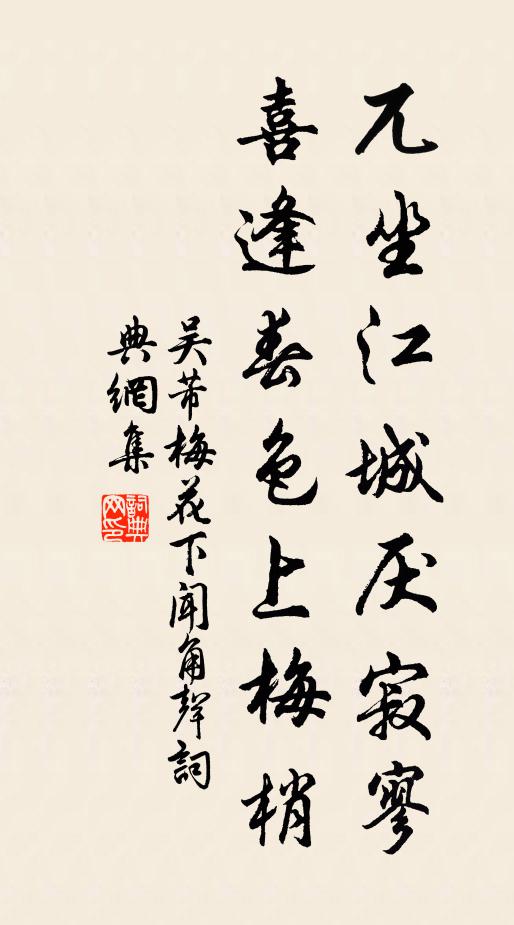 兀坐江城厌寂寥
喜逢春色上梅梢
吴芾梅花下闻角聲詞
典網集
詞典網印